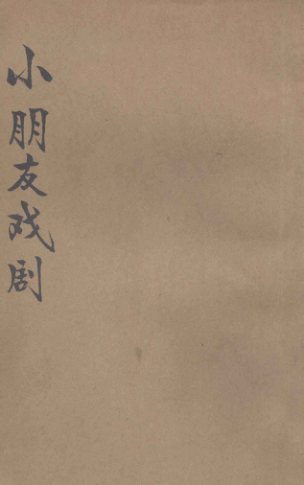 小朋友戏剧